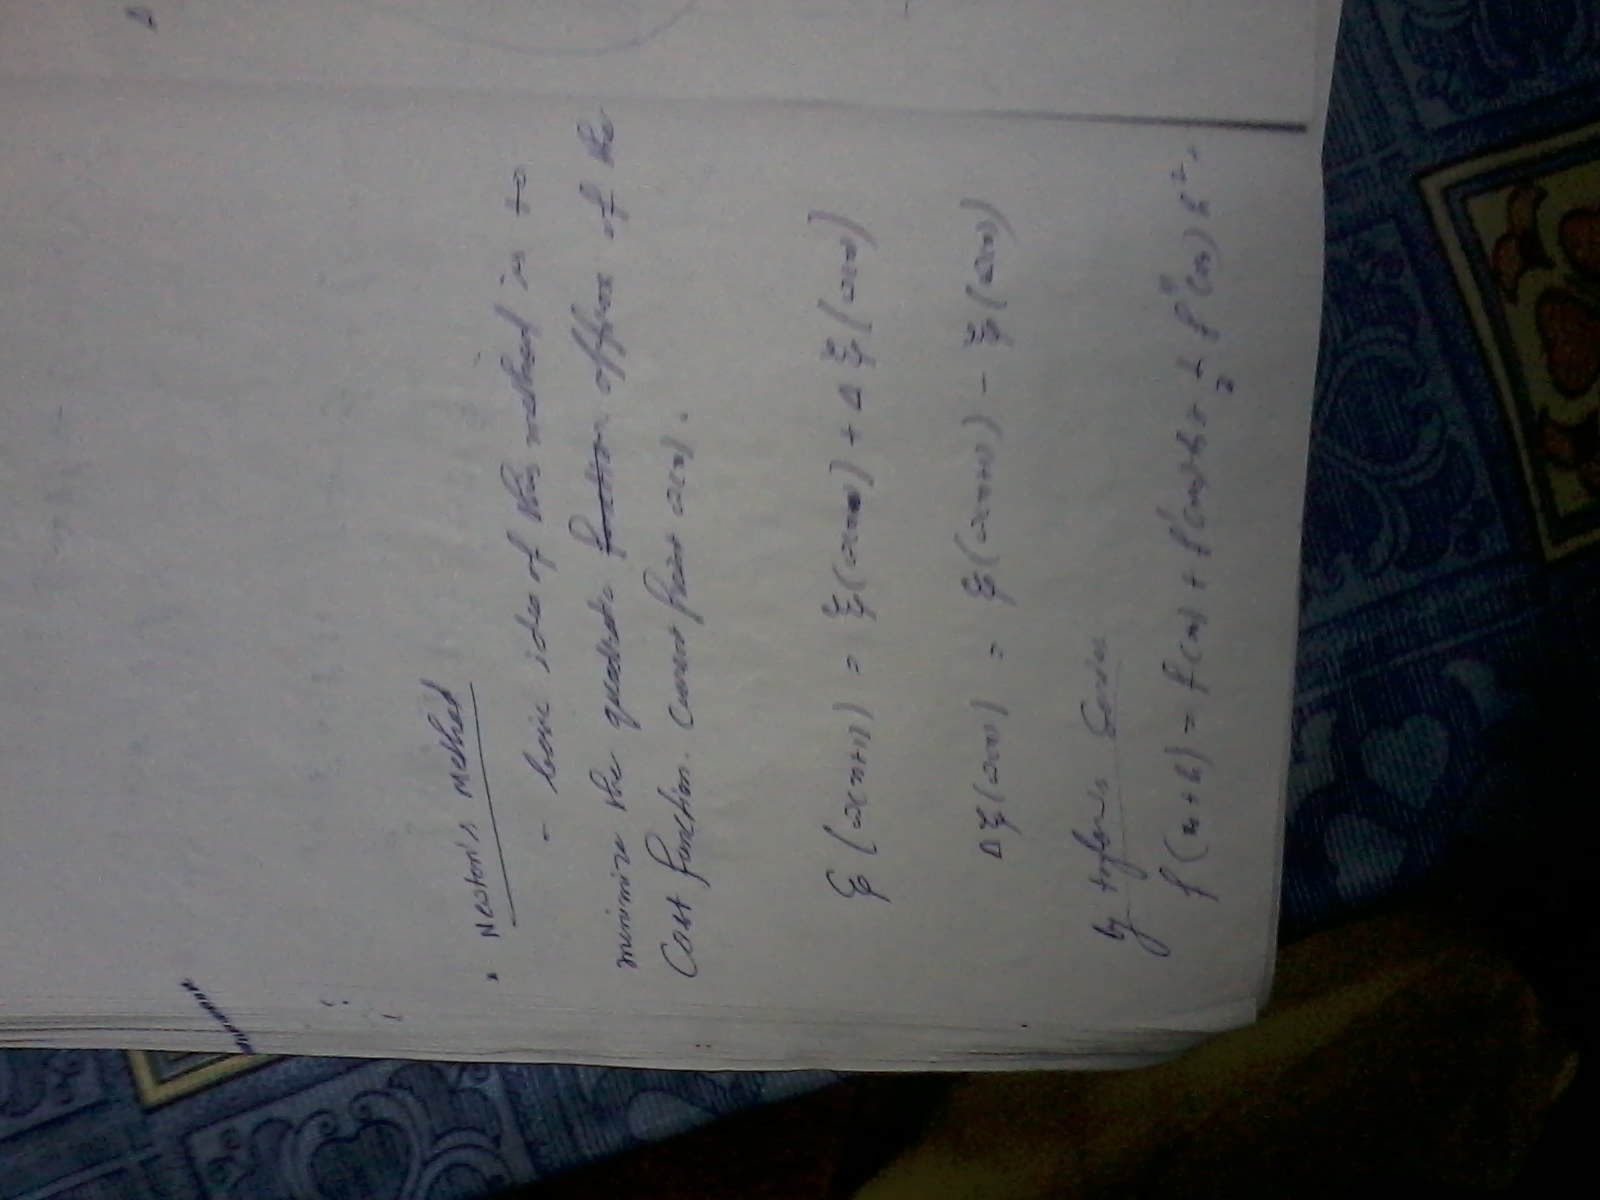 • Newton's Method
- basic idea of this method is to
minimize the quadratic function approx of the
Cost function. Current point ω(n).
ξ(ω(n+1)) = ξ(ω(n)) + Δξ(ω(n))
Δξ(ω(n)) = ξ(ω(n+1)) - ξ(ω(n))
by taylor's Series
f(x+h) = f(x) + f'(x)h + 1/2 f''(x)h².